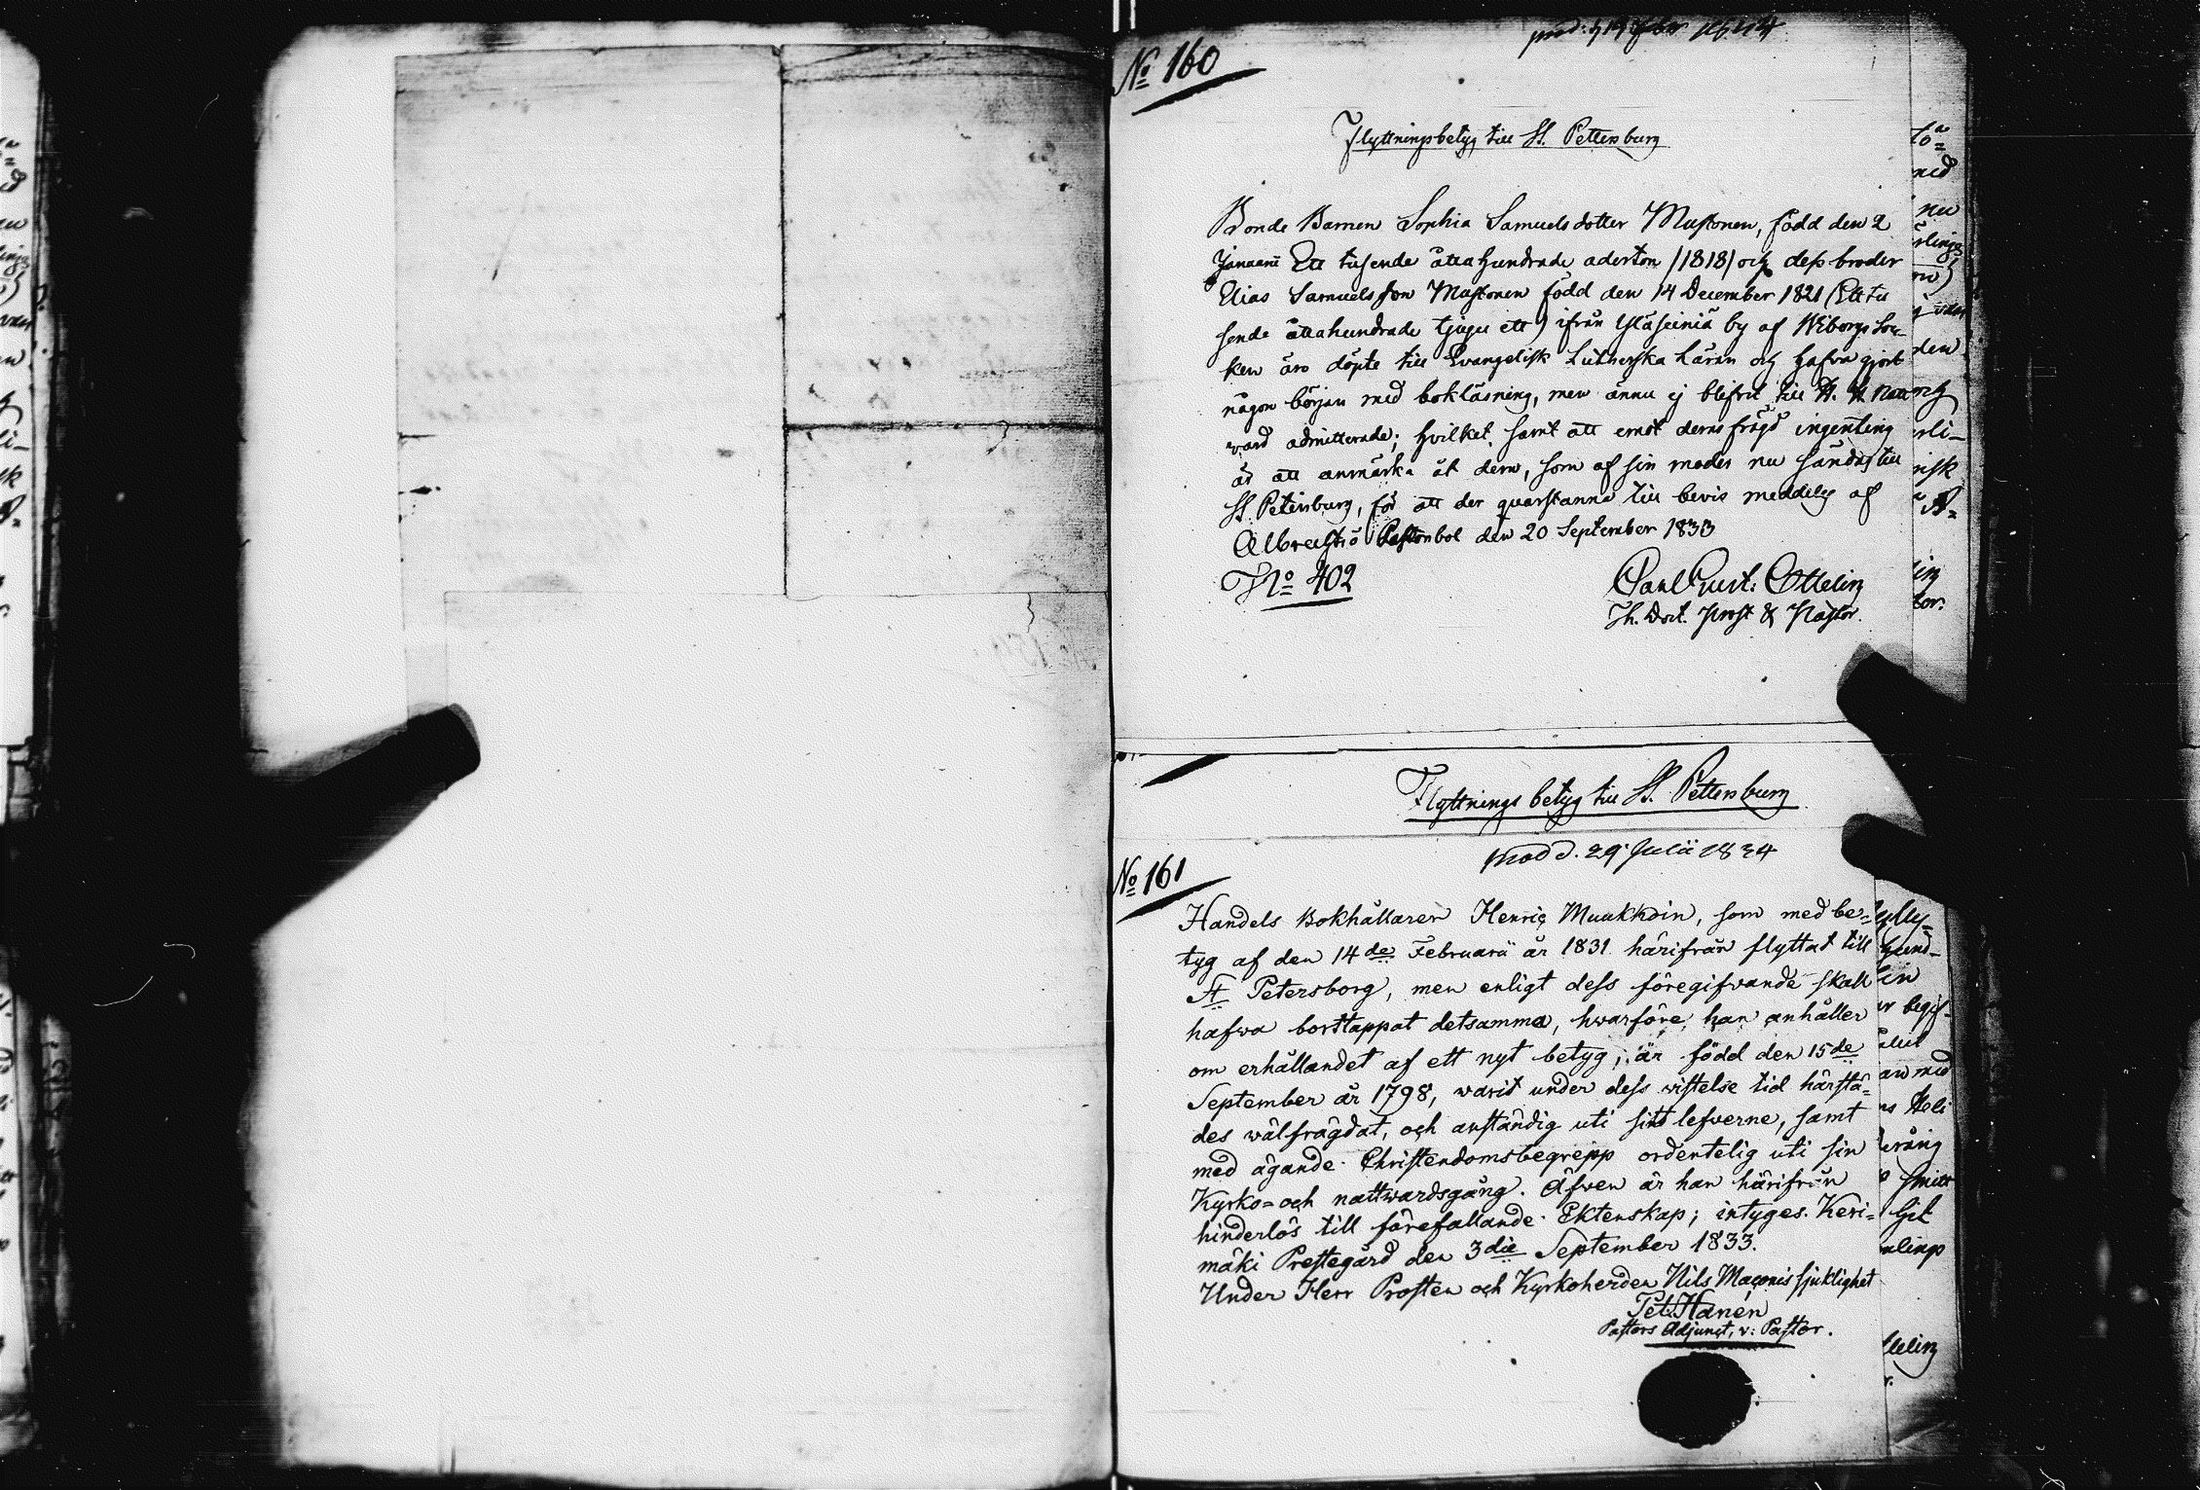 No 160
Flyttningsbetyg till St. Pettersburg
Bonde Barnen Sophia Samuelsdotter Mustonen, född den 2
Januarii Ett tusende åttahundrade aderton /1818/ och dess broder
Elias Samuelsson Mustonen född den 14 December 1821 (Ett tu
sende åttahundrade tjugu ett) ifrån Yläseiniä by af Wiborgs Soc-
ken äro döpte till Evangelisk Lutherska Läran och hafva gjort
någon början med bokläsning, men ännu ej blifvit till H. H. Natt
vard admitterade; hvilket, samt att emot deras frägd ingenting
är att anmärka åt dem, som af sin moder nu sändas till
St Petersburg, för att der quarstanna till bevis meddelas af
den 20 September 1833
No 402
Carl Gust. Ottelin
Th. Doct. Prost & Pastor.
Flyttnings betyg till St. Pettersburg
prod d. 29 Julii 1834
No 161
Handels Bokhållaren Henric Muukkoin, som med be=
tyg af den 14de Februarii år 1831 härifrån flyttat till
St Petersborg, men enligt dess föregifvande skall
hafwa borttappat detsamma, hwarföre han anhåller
om erhållandet af ett nytt betyg; är född den 15de
September år 1798, warit under dess wistelse tid härstä=
des wälfrägdat, och anständig uti sitt lefverne, samt
med ägande Christendomsbegrepp ordentelig uti sin
Kyrko= och nattwardsgång. Äfwen är han härifrån
hinderlös till förefallande Ektenskap; intyges. Keri=
mäki Prestegård den 3die September 1833.
Under Herr Prosten och Kyrkoherden Nils Maconis sjuklighet
Pet. Hanén
Pastors Adjunct, v: Pastor.